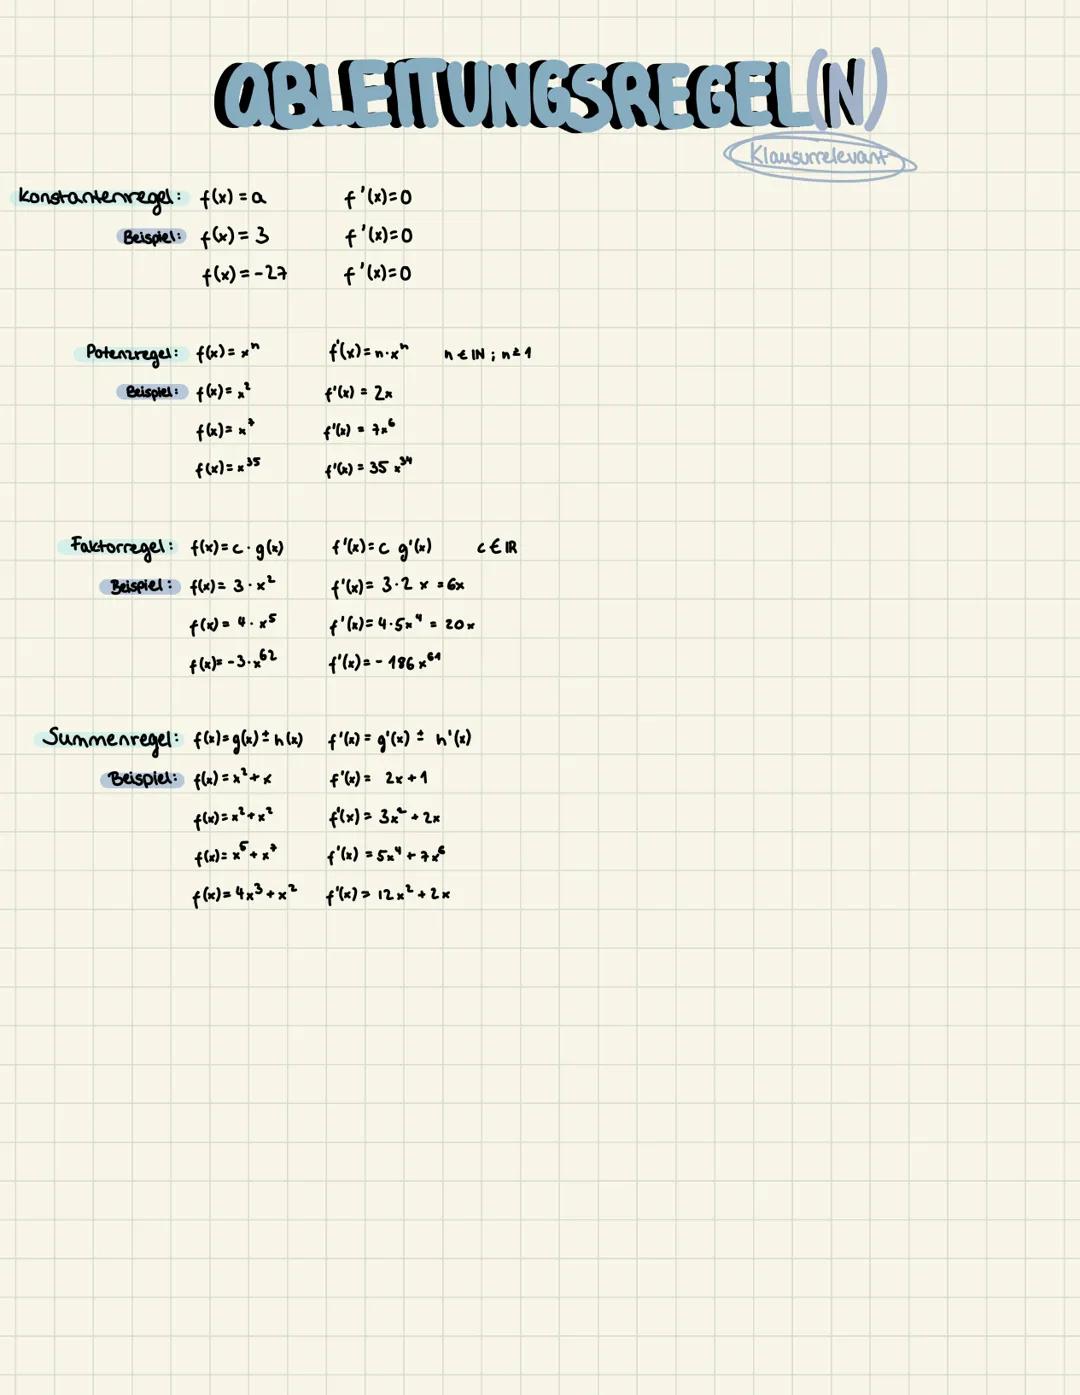 ABLEITUNGSREGEL(N)
Klausurrelevant
Konstantenregel: f(x) = a f'(x)=0
Beispiel: f(x) = 3 f'(x)=0
f(x) = -27 f'(x)=0
Potenzregel: f(x) = xⁿ f'(x) = n·xⁿ n ∈ ℕ ; n≥1
Beispiel: f(x) = x² f'(x) = 2x
f(x) = x⁷ f'(x) = 7x⁶
f(x) = x³⁵ f'(x) = 35 x³⁴
Faktorregel: f(x) = c · g(x) f'(x) = c g'(x) c ∈ ℝ
Beispiel: f(x) = 3 · x² f'(x) = 3·2 x = 6x
f(x) = 4 · x⁵ f'(x) = 4·5x⁴ = 20x
f(x) = -3·x⁶² f'(x) = - 186 x⁶¹
Summenregel: f(x) = g(x) ± h(x) f'(x) = g'(x) ± h'(x)
Beispiel: f(x) = x² + x f'(x) = 2x + 1
f(x) = x² + x² f'(x) = 3x² + 2x
f(x) = x⁵ + x⁷ f'(x) = 5x⁴ + 7x⁶
f(x) = 4x³ + x² f'(x) = 12x² + 2x